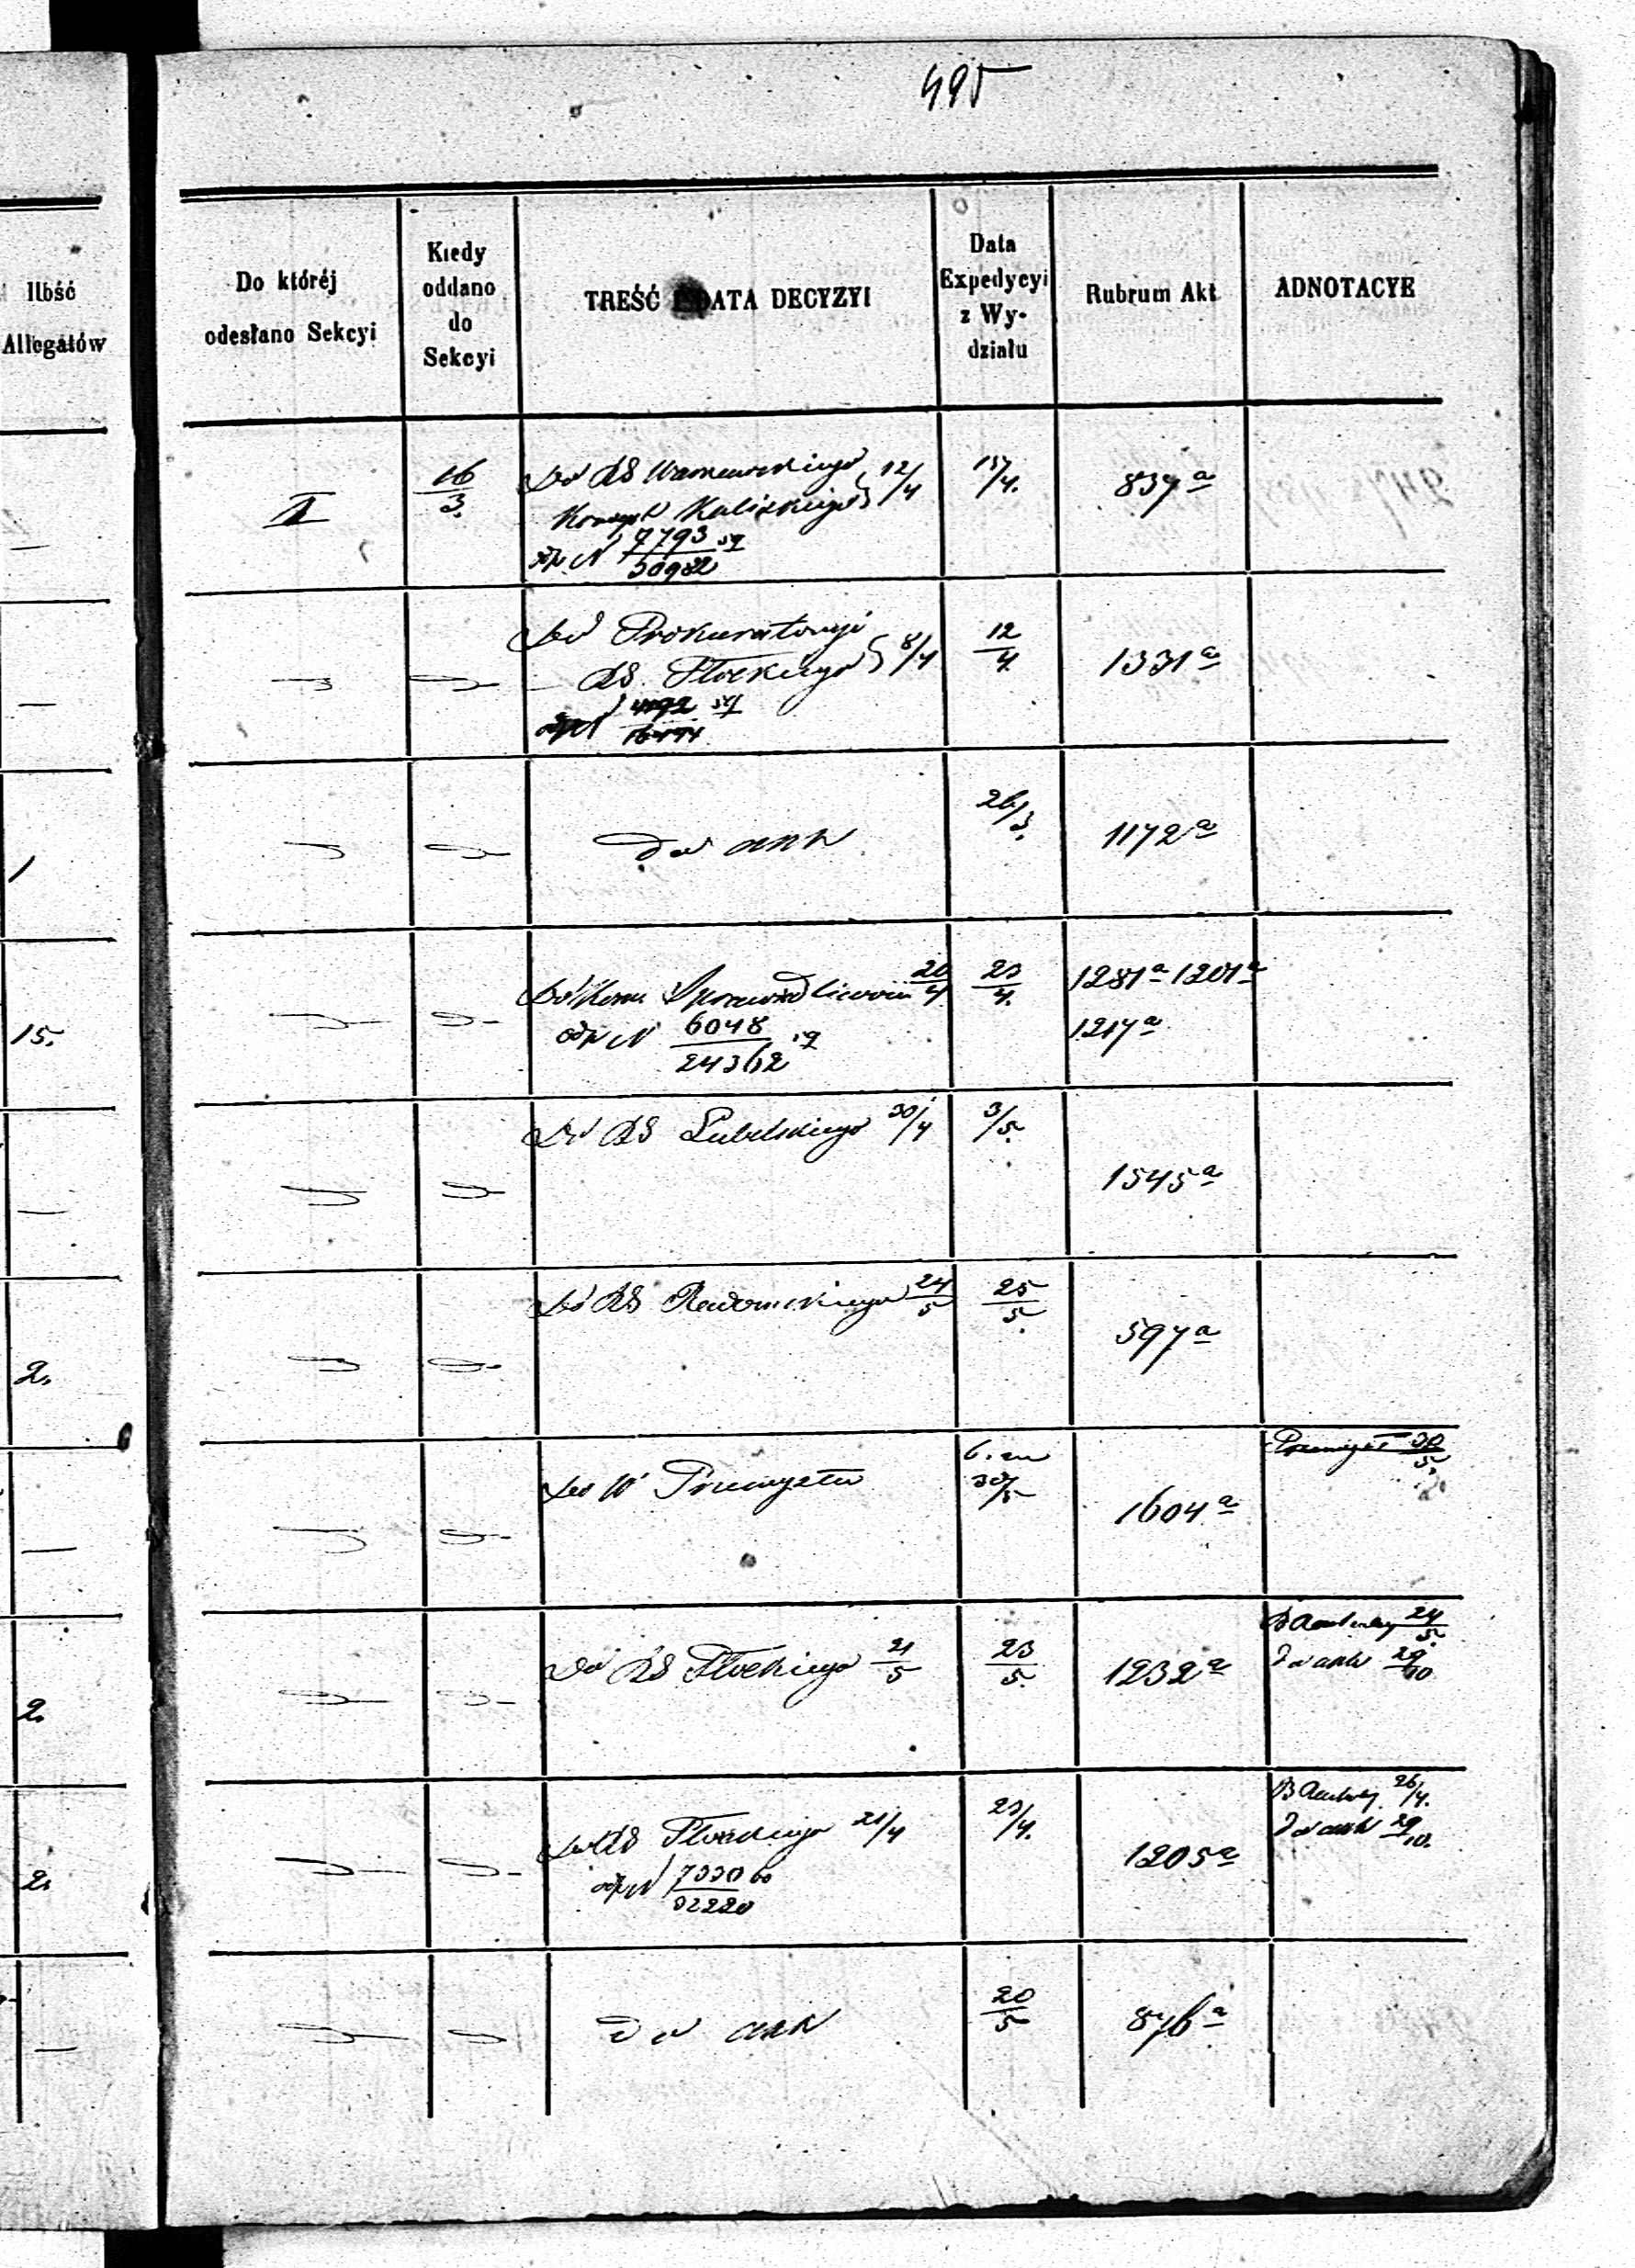 495
Ilbść
Allegatów
Do któréj
odesłano Sekcyi
Kiedy
oddano
do
Sekcyi
TREŚĆ I DATA DECYZYI
Data
Expedycyi
z Wy-
działu
Rubrum Akt
ADNOTACYE
II
16/3.
Do RG Warszawskiego
Kaliskiego 12/4
odp N 7793/30982
15/4.
837 a
Do Prokuratoryi
RG. Płockiego 8/4
12/4.
1331 a
1
Do akt
26/3.
1172 a
15.
Do Kom Sprawiedliwości 20/4
odp N 6048/24362
23/4.
1281 a 1201 a
1217 a
Do RG Lubelskiego 30/4
3/5.
1545 a
2.
Do RG Radomskiego 24/5
25/5.
597 a
Do W Przemysłu
30/5
1604 a
Przemysł 30/5.
2.
Do RG Płockiego 21/5
23/5.
1232 a
24/5.
Do akt 29/10
2.
Do RG Płockiego 21/4
odp N 7330/32220
23/4.
1205 a
26/4.
Do akt 29/10.
Do akt
20/5
876 a